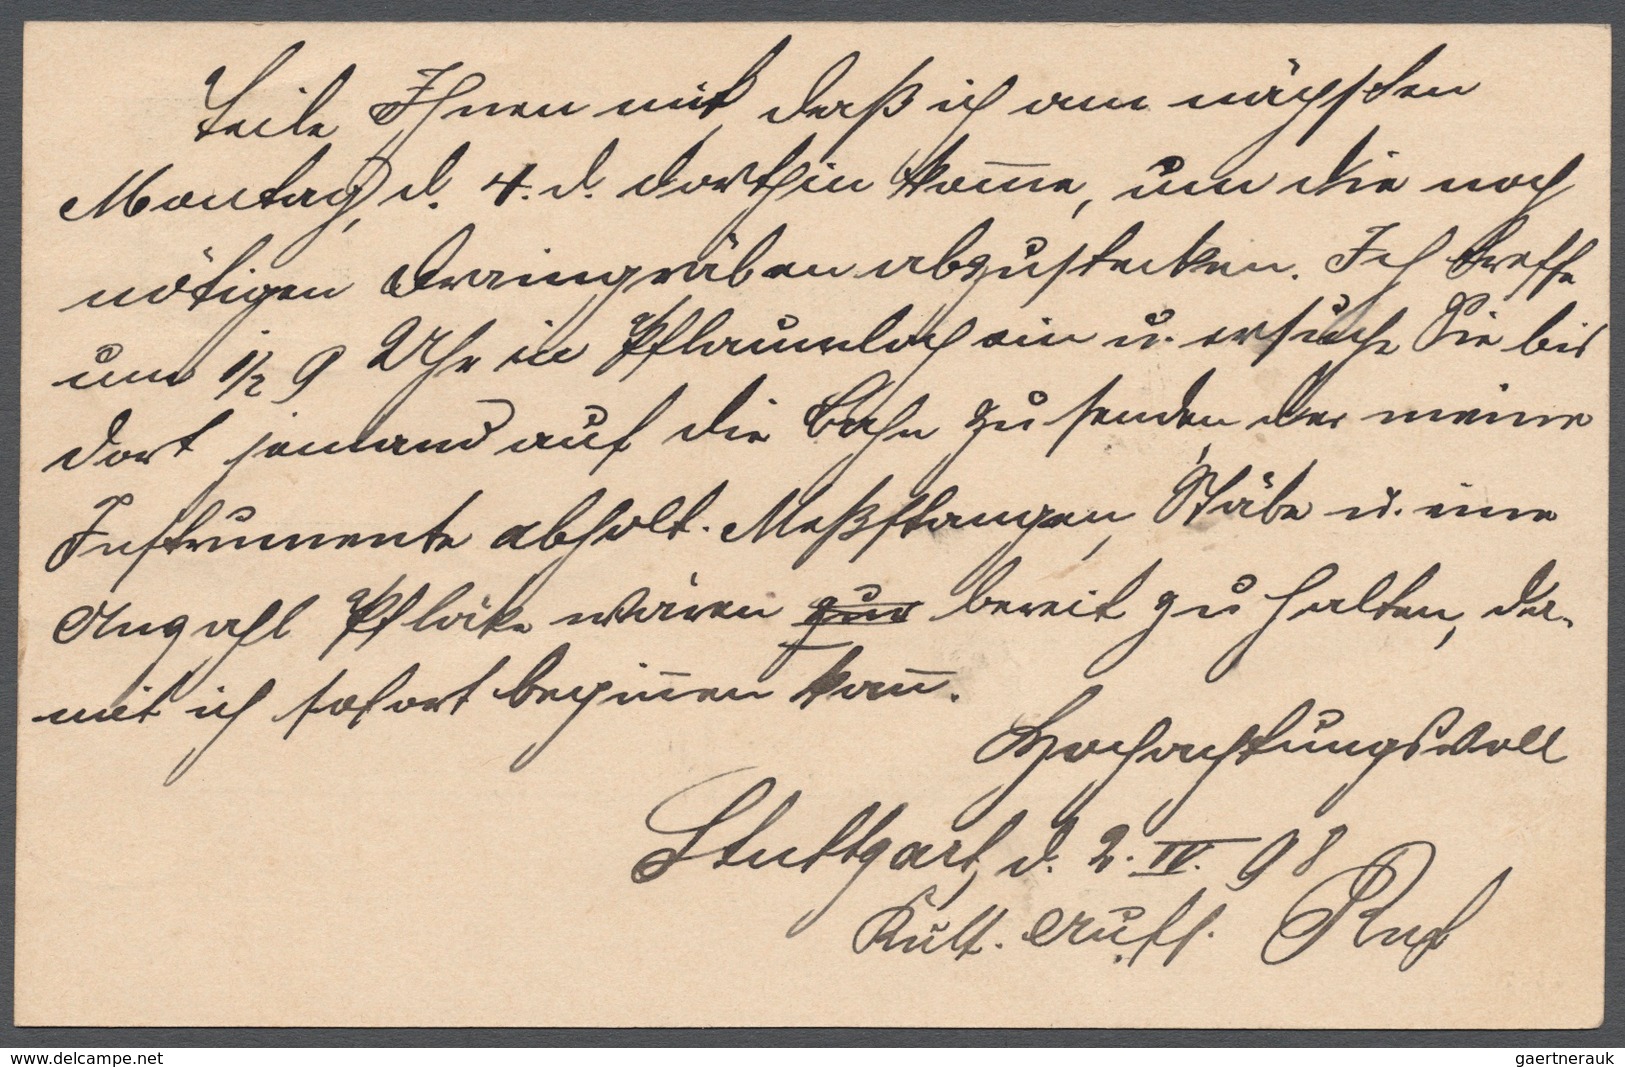 Teile Ihnen mit, daß ich am nächsten
Montag, d. 4. d. dorthin kom̅e, um die noch
nötigen Draingräben abzustecken. Ich treffe
um 1/2 9 Uhr in Pflaumloch ein u. ersuche Sie bis
dort jemand auf die Bahn zu senden, der meine
Instrumente abholt. Meßstangen, Stäbe u. eine
Anzahl Pflöcke wären zur bereit zu halten, da-
mit ich sofort begin̅en kan̅.
Hochachtungsvoll
Stuttgart, d. 2. IV. 98
Kult. Aufs.
www.delcampe.net
gaertnerauk